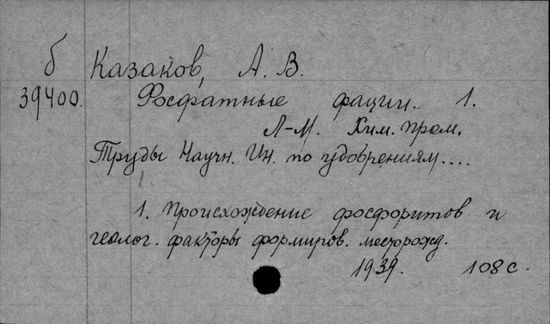 б Казаков, А. В.
39400. Фосфатные фации. 1.
Л-М. Хим. пром.
Труды Научн. Ин. по удобрениям....
1. Происхождение фосфоритов и
геолог. факторы формиров. месторожд.
1939. 108 с.